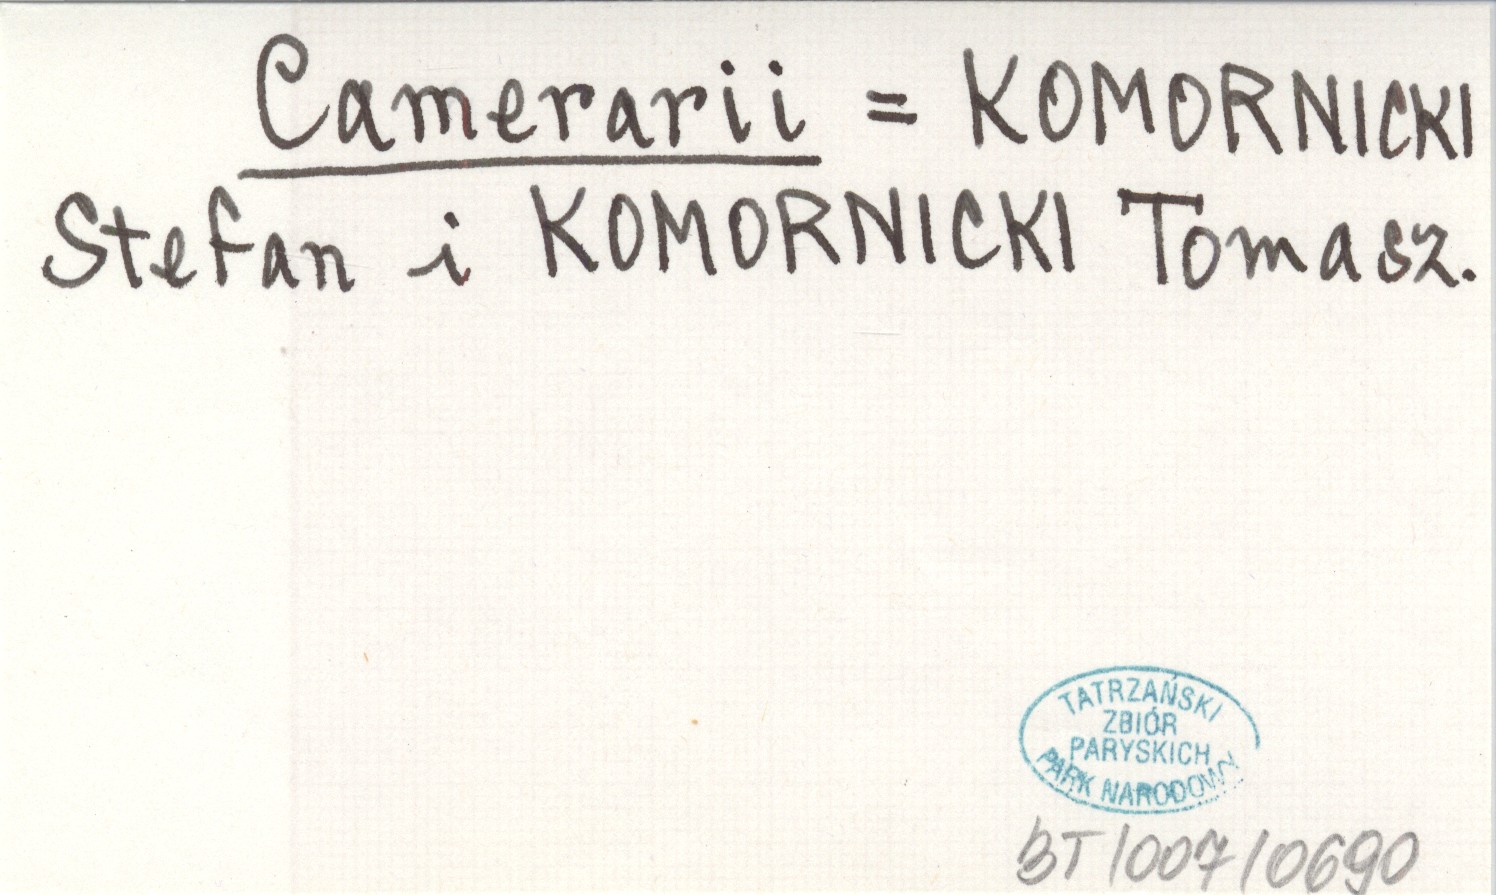 Camerarii = KOMORNICKI
Stefan i KOMORNICKI Tomasz.
TATRZAŃSKI
ZBIÓR
PARYSKICH
PARK NARODOWY
BT/007/0690